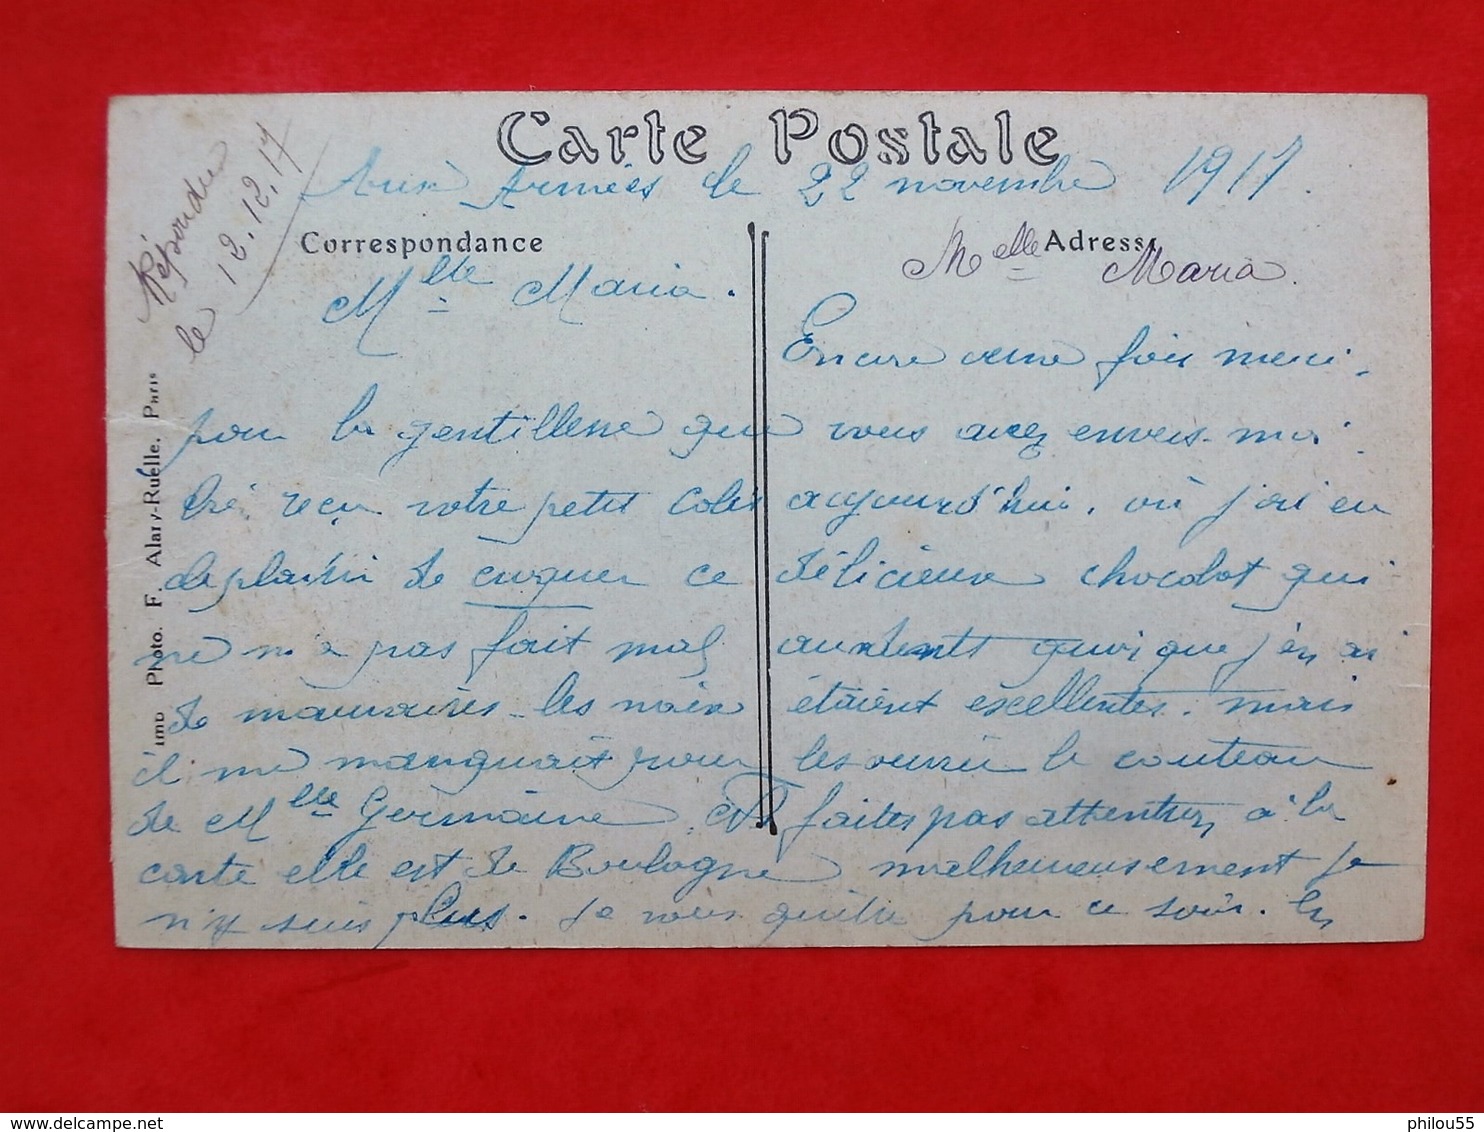 Carte Postale
Répondu
le 12.12.17
Aux Armées le 22 novembre 1917.
Correspondance
Adresse
Melle Maria.
Mlle Maria.
Encore une fois merci.
pour la gentillesse que vous avez envers moi.
reçu votre petit colis aujourd'hui. où j'ai eu
le plaisir de croquer ce délicieux chocolat qui
ne m'a pas fait mal aux dents quoique j'en ai
de mauvaises. les noix étaient excellentes. mais
il me manquait pour les ouvrir le couteau
de Mlle Germaine. faites pas attention à la
carte elle est de Boulogne malheureusement je
n'y suis plus. Je vous quitte pour ce soir. en
Imp Photo. F. Alary-Ruelle. Paris
philou55